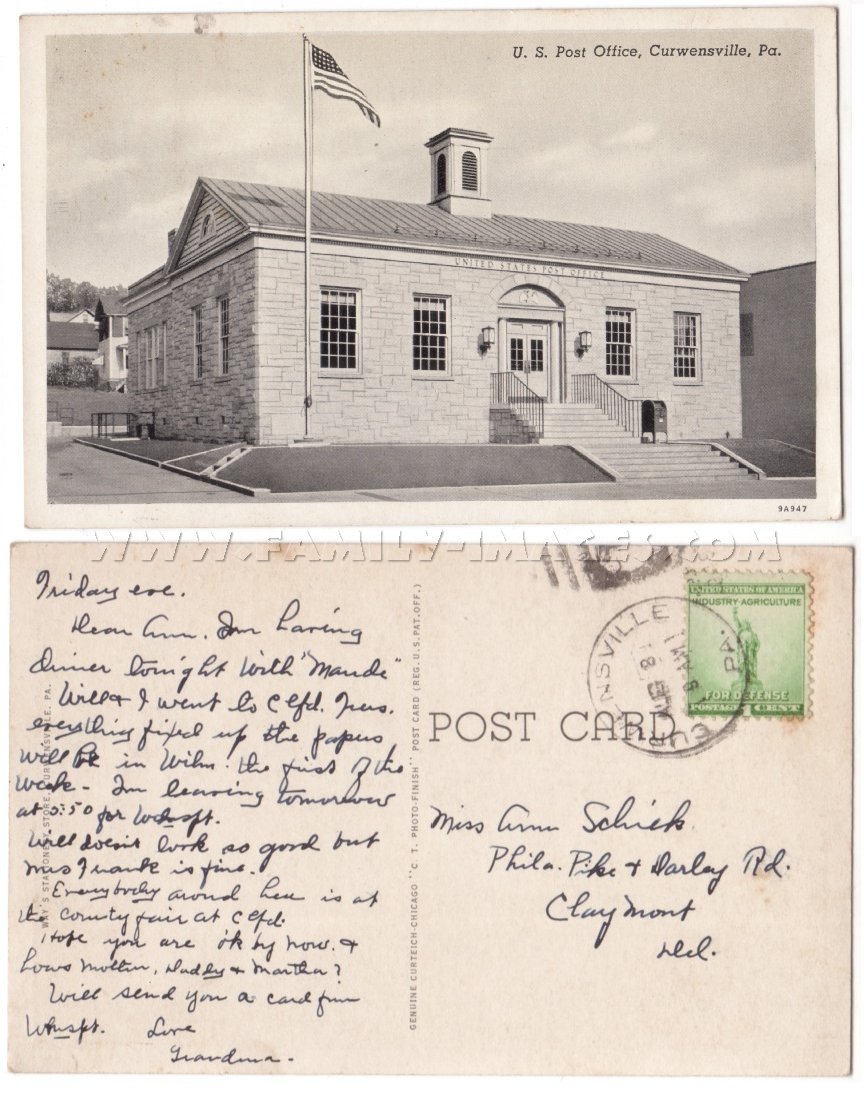 U. S. Post Office, Curwensville, Pa.
UNITED STATES POST OFFICE
9A947
WWW.FAMILY-IMAGES.COM
Friday eve.
Dear Ann. I'm having
dinner tonight with "Maude"
Will & I went to Clfd. Thurs.
everything fixed up the papers
will be in Wilm. the first of the
week - I'm leaving tomorrow
at 5:50 for Wmspt.
Will doesn't look so good but
Mrs Frank is fine.
Everybody around here is at
the county fair at Clfd.
Hope you are ok by now. &
hows Mother, Daddy & Martha?
Will send you a card from
Wmspt. Love
Grandma.
WAY'S STATIONERY STORE, CURWENSVILLE, PA.
GENUINE CURTEICH-CHICAGO "C. T. PHOTO-FINISH" POST CARD (REG. U.S. PAT. OFF.)
POST CARD
CURWENSVILLE PA.
8 AM
UNITED STATES OF AMERICA
INDUSTRY-AGRICULTURE
FOR DEFENSE
POSTAGE 1 CENT
Miss Ann Schick
Phila. Pike & Darley Rd.
Claymont
Del.